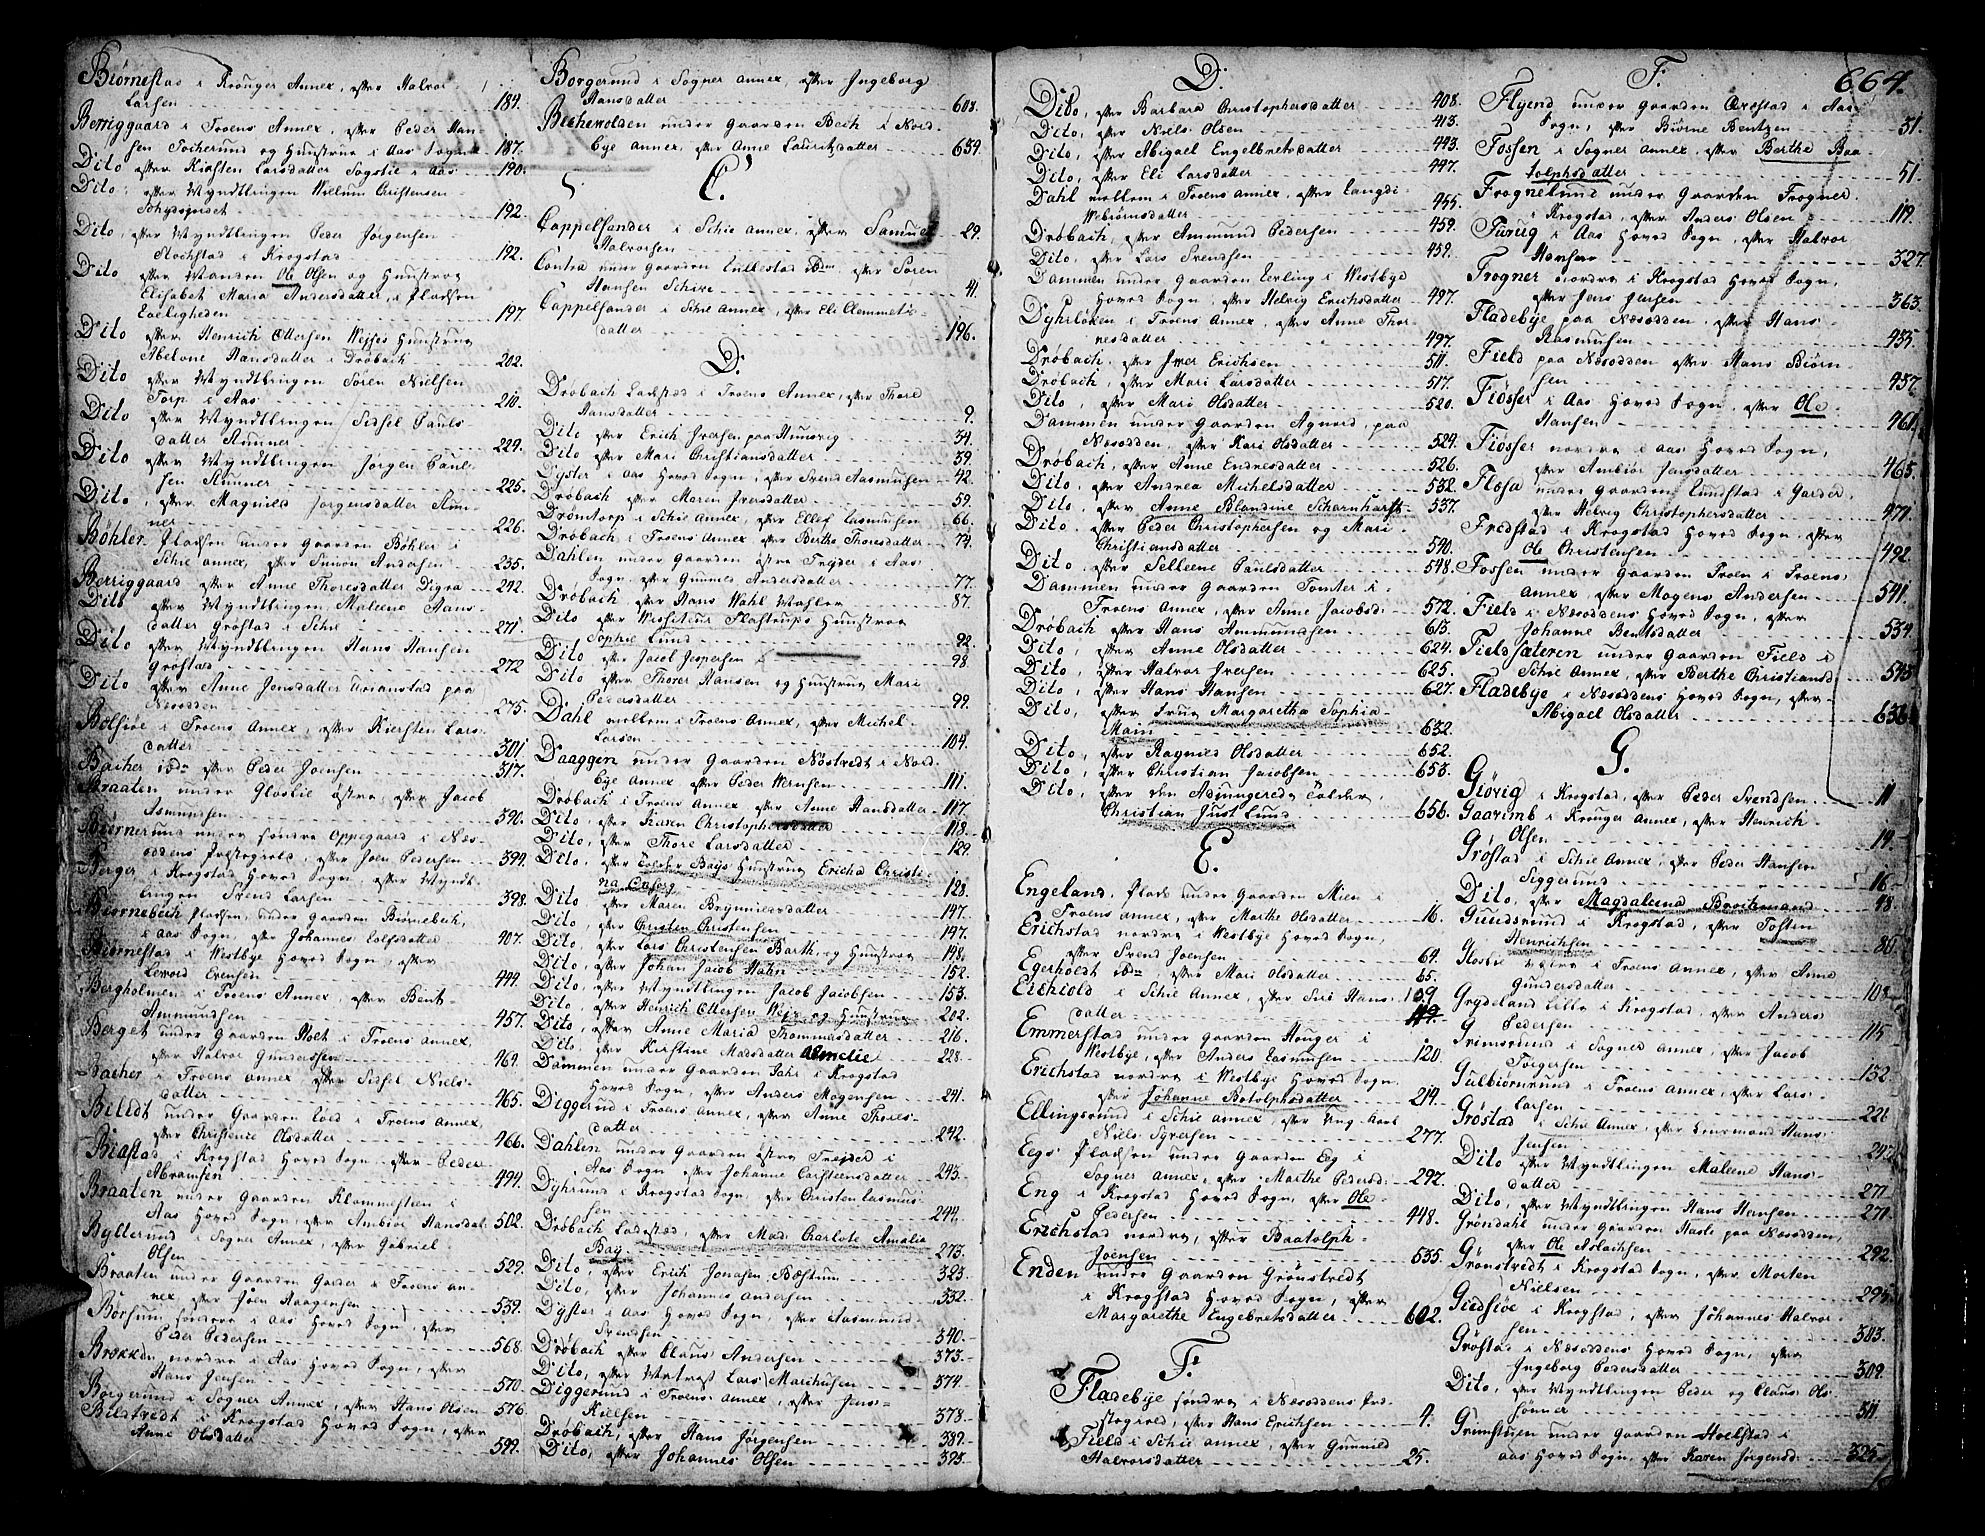 Biørnestad i Krouger Annex, efter Halvor
Larsen 184.
Berriggaard i Froens Annex, efter Peder Han-
sen Tocherund og Hunstrue i Aas Sogn 187.
Dito efter Kirsten Larsdatter Sogstie i Aas 190.
Dito, efter Myndtlingen Willum Cristensen
192.
Dito, efter Myndtlingen Peder Jörgensen
Stochstad i Krogstad 192.
Dito efter Manden Ole Olsen og Hunstrue
Elisabet Maria Andersdatter, i Pladsen
Eeeligheden 197.
Dito efter Henrich Ottersen Wejses Hunstrue
Abelone Hansdatter i Dröbach 202.
Dito efter Myndtlingen Sören Nielsen
Torp i Aas 210.
Dito efter Myndtlingen Sidsel Pauls
datter Hunner 229.
Dito efter Myndtlingen Jörgen Paul-
sen Hunner 225.
Dito, efter Magnild Jörgensdatter Hun-
ner 226.
Böhler Pladsen under Gaarden Böhler i
Schie Annex, efter Simon Andersen 235.
Berriggaard efter Anne Thoresdatter Digra 242.
Dito efter Myndtlingen Malene Hans-
datter Gröstad i Schie 271.
Dito efter Myndtlingen Hans Hansen
Gröstad 272.
Dito efter Anne Jonsdatter Urianstad paa
Næsodden 275.
Bölsiöe i Froens Annex, efter Kiersten Lars-
datter 301.
Bacher ibdm efter Peder Joensen 317.
Braaten under Glosbie östre, efter Jacob
Asmundsen 390.
Biörnerud under söndre Oppegaard i Næs-
oddens Præstegield, efter Joen Pedersen 394.
Berger i Krogstad Hoved Sogn, efter Myndt-
lingen Svend Larsen 398.
Biörnebech Pladsen, under Gaarden Biörnebech,
i Aas Sogn, efter Johannes Colfsdatter 407.
Biörnestad i Westbye Hoved Sogn, efter
Levord Evensen 444.
Bergholmen i Froens Annex, efter Bent
Ammundsen 457.
Berget under Gaarden Holt i Froens Annex,
efter Halvor Gundersen 464.
Bacher i Froens Annex efter Sidsel Niels-
datter 465.
Billedt under Gaarden Loed i Froens Annex,
efter Christense Olsdatter 466.
Biastad i Krogstad Hoved Sogn efter Peder
Abramsen 494.
Braaten under Gaarden Klommesteen i
Aas Hoved Sogn, efter Ambiör Hansdat. 502.
Byllerund i Sogner Annex, efter Gabriel
Olsen 529.
Braaten under Gaarden Garder i Froens An-
nex, efter Joen Haagensen 539.
Börsum söndre i Aas Hoved Sogn, efter
Peder Pedersen 568.
Brækkde nordre i Aas Hoved Sogn, efter
Hans Jensen 570.
Borgerund i Sogner Annex, efter Hans Olsen 576.
Bilstredt i Krogstad Hoved Sogn, efter
Anne Olsdatter 599.
Borgerund i Sogner Annex, efter Ingeborg
Hansdatter 608.
Bechevolden under Gaarden Bech i Nord-
bye Annex, efter Anne Lauritzdatter 639.
C.
Cappelsander i Schie Annex, efter Samuel
Halvorsen 29.
Contra under Gaarden Lullestad ibdm efter Sören
Hansen Schive 41.
Cappelsander i Schie Annex, efter Eli Clemmets-
datter 196.
D.
Dröbach Ladested i Froens Annex, efter Thore
Hansdatter 9.
Dito efter Erich Iversen paa Hunsvig 34.
Dito efter Mari Christiansdatter 39.
Dyster i Aas Hoved Sogn, efter Svend Aasmunsen 42.
Dröbach efter Maren Iversdatter 59.
Drömtorp i Schie Annex, efter Ellef Rasmunsen 66.
Dröbach i Froens Annex efter Berthe Thoresdatter 74.
Dahlen under Gaarden östre Frejder i Aas
Sogn, efter Gunnild Andersdatter 77.
Dröbach efter Hans Wahl Mahler 87.
Dito efter Wissiteur Flostrups Hunstrue
Sophie Lund 92.
Dito efter Jacob Jespersen 98.
Dito efter Thorer Hansen og Hunstrue Mari
Pedersdatter 99.
Dahl mellem i Froens Annex, efter Michel
Larsen 104.
Daaggen under Gaarden Nöstvedt i Nord-
bye Annex efter Peder Mensen 111.
Dröbach i Froens Annex efter Anne Hansdatter 117.
Dito, efter Karen Christophersdatter 118.
Dito, efter Thore Larsdatter 129.
Dito, efter Tolder Bays Hunstrue Ericha Christi-
na Enberg 128.
Dito efter Maren Brynnieldsdatter 147.
Dito, efter Christen Christensen 147.
Dito, efter Lars Christensen Barth, og Hunstrue 148.
Dito, efter Johan Jacob Hahn 152.
Dito, efter Myndtlingen Jacob Jacobsen 153.
Dito, efter Henrich Ottersen Wejs og Hunstrue 202.
Dito, efter Anne Maria Thommasdatter 216.
Dito, efter Kirstine Madsdatter Almelie 228.
Dammen under Gaarden Dahl i Krogstad
Hoved Sogn, efter Anders Mogensen 241.
Diggerud i Froens Annex, efter Anne Thores-
datter 242.
Dahlen under Gaarden östre Frejder i
Aas Sogn efter Johanne Carstensdatter 243.
Dyhrund i Krogstad Sogn, efter Christen Rasmus-
sen 244.
Dröbach Ladested, efter Mad. Charlote Amalia
Bay 273.
Dito, efter Erich Jonasen Bæstum 323.
Dito, efter Johannes Andersen 332.
Dyster i Aas Hoved Sogn, efter Aasmund
Svendsen 340.
Dröbach efter Claus Andersen 373.
Dito, efter Matros Lars Marthisen 374.
Diggerund i Froens Annex, efter Jens
Nielsen 378.
Dröbach, efter Hans Jörgensen 389.
Dito, efter Johannes Olsen 395.
D.
Dito, efter Barbara Christophersdatter 408.
Dito, efter Niels Olsen 413.
Dito, efter Abigael Engelbretsdatter 443.
Dito, efter Eli Larsdatter 447.
Dahl mellem i Froens Annex, efter Langdi
Webiörnsdatter 455.
Dröbach, efter Ammund Pedersen 459.
Dito, efter Lars Svendsen 459.
Dammen under Gaarden Eerling i Westbye
Hoved Sogn, efter Helvig Erichsdatter 497.
Dyhrlöken i Froens Annex, efter Anne Thor-
resdatter 497.
Dröbach, efter Iver Erichsen 511.
Dröbach, efter Mari Larsdatter 517.
Dito, efter Mari Olsdatter 520.
Dammen under Gaarden Agnord, paa
Næsodden, efter Kari Olsdatter 524.
Dröbach, efter Anne Endresdatter 526.
Dito, efter Andrea Michelsdatter 532.
Dito, efter Anne Blandine Scharnharst 537.
Dito, efter Peder Christophersen og Mari
Christiansdatter 540.
Dito, efter Selleene Paulsdatter 548.
Dammen under Gaarden Tomter i
Froens Annex, efter Anne Jacobsd. 572.
Dröbach efter Hans Ammundsen 613.
Dito, efter Anne Olsdatter 624.
Dito, efter Halvor Iversen 625.
Dito, efter Hans Hansen 627.
Dito, efter Frue Margaretha Sophia
Main 632.
Dito, efter Ragnild Olsdatter 652.
Dito, efter Christian Jacobsen 653.
Dito, efter den Adjungerede Tolder,
Christian Just Lund 656.
E.
Engeland, Plads under Gaarden Mien i
Froens Annex, efter Marthe Olsdatter 16.
Erichstad nordre i Westbye Hoved Sogn,
efter Svend Joensen 64.
Egerholdt ibdm, efter Mari Olsdatter 65.
Eichiold i Schie Annex, efter Siri Hans- 109
datter 119.
Emmerstad under Gaarden Houger i
Westbye, efter Anders Rasmusen 120.
Erichstad nordre i Westbye Hoved Sogn,
efter Johanne Botolphsdatter 214.
Ellingsrund i Schie Annex, efter Ung-karl
Niels Syversen 277.
Eegs Pladsen under Gaarden Eeg i
Sogner Annex, efter Marthe Pedersd. 292.
Eng i Krogstad Hoved Sogn, efter Ole
Pedersen 448.
Erichstad nordre, efter Baatolph
Joensen 535.
Enden under Gaarden Grönstredt
i Krogstad Hoved Sogn, efter
Margarethe Engebretsdatter 602.
F.
Fladebye söndre i Næsoddens Præ-
stegield, efter Hans Erichsen 4.
Field i Schie Annex, efter Gunnild
Halvorsdatter 25.
F. 664.
Flyend under Gaarden Qvæstad i Aas
Sogn, efter Biörne Bentzen 31.
Fossen i Sogner Annex, efter Berthe Baa-
tolphsdatter 51.
Frognelund under Gaarden Frogner
i Krogstad, efter Anders Olsen 119.
Furug i Aas Hoved Sogn, efter Halvor
Hansen 327.
Frogner nordre i Krogstad Hoved Sogn,
efter Jens Jensen 363.
Fladebye paa Næsodden, efter Hans
Rasmusen 435.
Field paa Næsodden efter Hans Biörn-
sen 457.
Fiösser i Aas Hoved Sogn, efter Ole
Hansen 461.
Fiösser nordre i Aas Hoved Sogn,
efter Ambiör Jensdatter 465.
Flæsa under Gaarden Lundstad i Garder,
efter Helvig Christophersdatter 471.
Fredstad i Krogstad Hoved Sogn, efter
Ole Christensen 492.
Fossen under Gaarden Froen i Froens
Annex, efter Mogens Andersen 541.
Field i Næsoddens Hoved Sogn, efter
Johanne Bentsdatter 554.
Fieldsæteren under Gaarden Field i
Schie Annex, efter Berthe Christiansd. 593.
Fladebye i Næsoddens Hoved Sogn, efter
Abigael Olsdatter 636.
G.
Giövig i Krogstad, efter Peder Svendsen 11.
Gaaremb i Krouger Annex, efter Henrich
Olsen 14.
Gröstad i Schie Annex, efter Peder Hansen
Siggerund 16.
Dito, efter Magdalena Brochmand 48.
Gundsrund i Krogstad, efter Tosten
Henrichsen 86.
Glosbie vestre i Froens Annex, efter Anne
Gundersdatter 108.
Grydeland Lille i Krogstad, efter Anders
Pedersen 115.
Grimsrund i Sogner Annex, efter Jacob
Torgersen 132.
Gulbiörnrund i Froens Annex, efter Lars
Larsen 226.
Gröstad i Schie Annex, efter Lensmand Hans
Jensen 247.
Dito efter Myndtlingen Malene Hans-
datter 271.
Dito, efter Myndtlingen Hans Hansen 271.
Gröndahl under Gaarden Hasle paa Næsodden,
efter Ole Aslachsen 292.
Grönstredt i Krogstad Sogn, efter Morten
Nielsen 295.
Giedsiöe i Krogstad, efter Johannes Halvor-
sen 303.
Gröstad i Næsoddens Hoved Sogn, efter
Ingeborg Pedersdatter 309.
Dito, efter Myndtlingen Peder og Claus Ols
sönner 311.
Grimstuen under Gaarden Holstad i
Aas Hoved Sogn, efter Karen Jörgensd. 325.